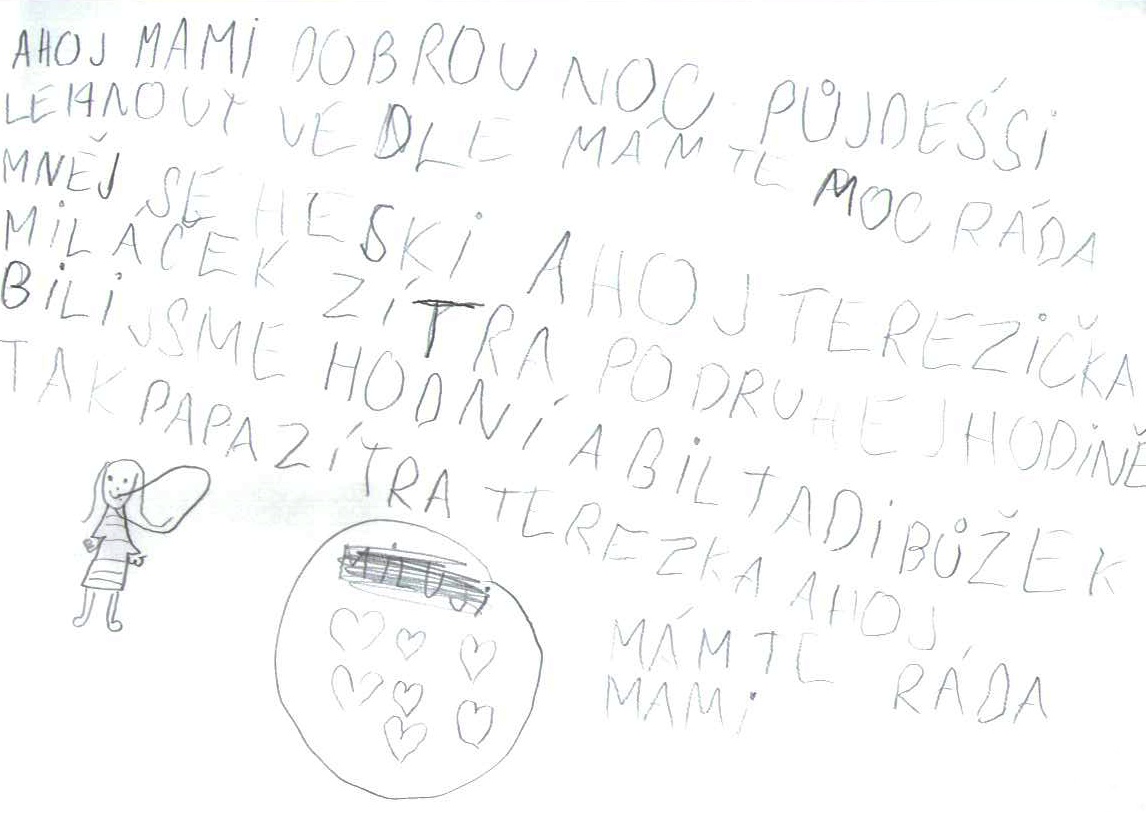 AHOJ MAMi DOBROU NOC PŮJDEŠSi
LEHNOUT VEDLE MÁM TE MOC RÁDA
MNĚJ SE HESKi AHOJ TEREZiČKA
MiLÁČEK ZÍTRA PODRUHEJHODiNĚ
BiLi JSME HODNÍ A BiL TADi BŮŽEK
TAK PAPA ZÍTRA TEREZKA AHOJ
MÁM TE RÁDA
MAMi